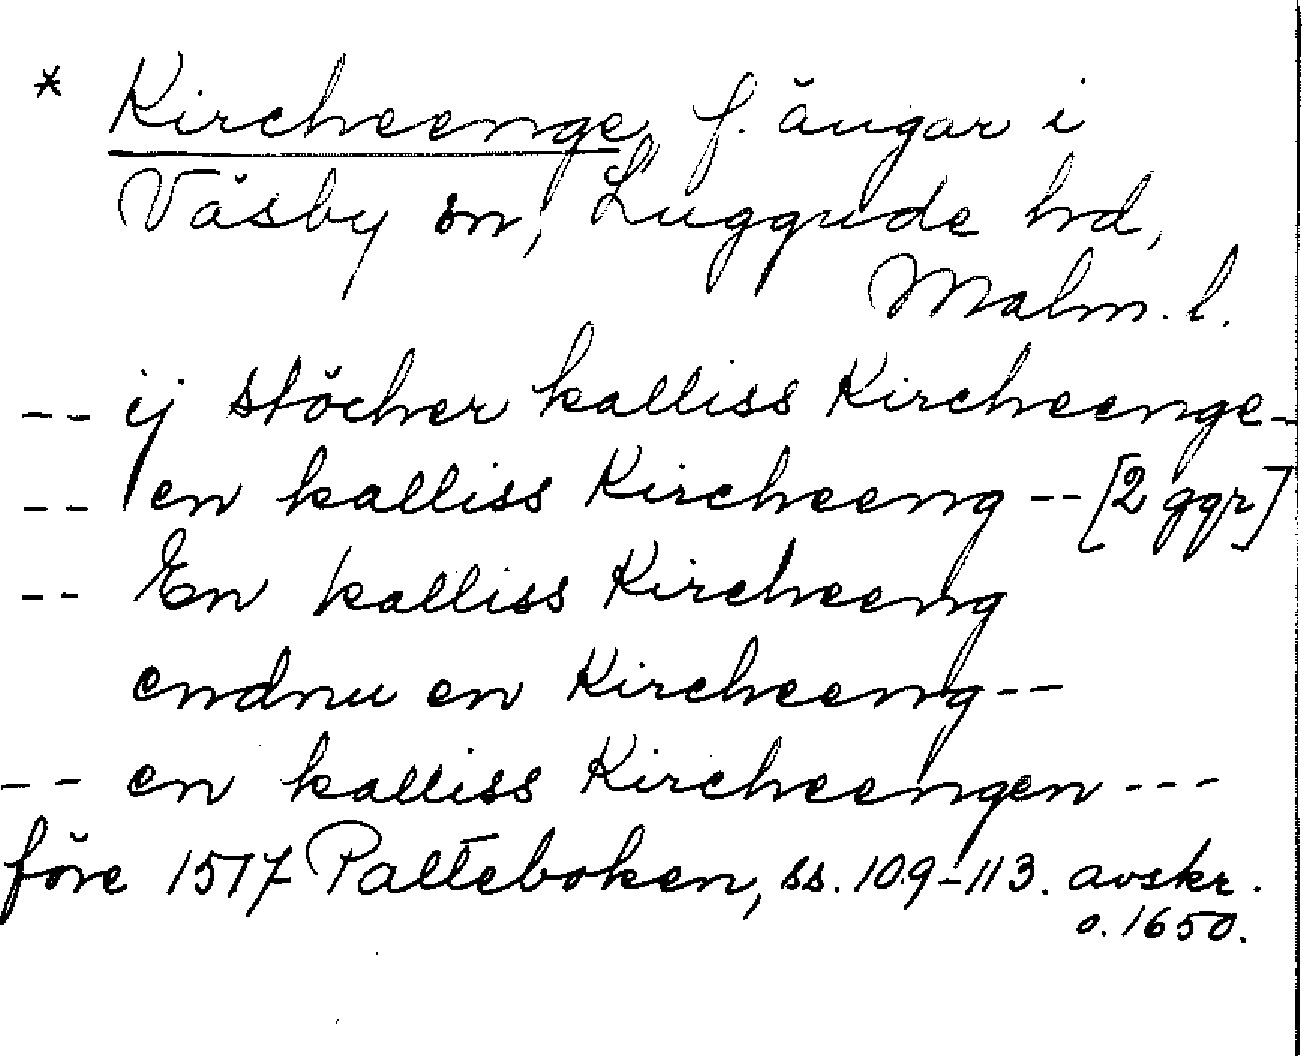 * Kircheenge, f. ängar i
Väsby sn, Luggude hd,
Malm. l.
-- ij stöcher kalliss Kircheenge--
-- en kalliss Kircheeng -- [2 ggr]
-- En kalliss Kircheeng
endnu en Kircheeng --
-- en kalliss Kircheengen ---
före 1517 Palteboken, ss. 109-113. avskr.
o. 1650.